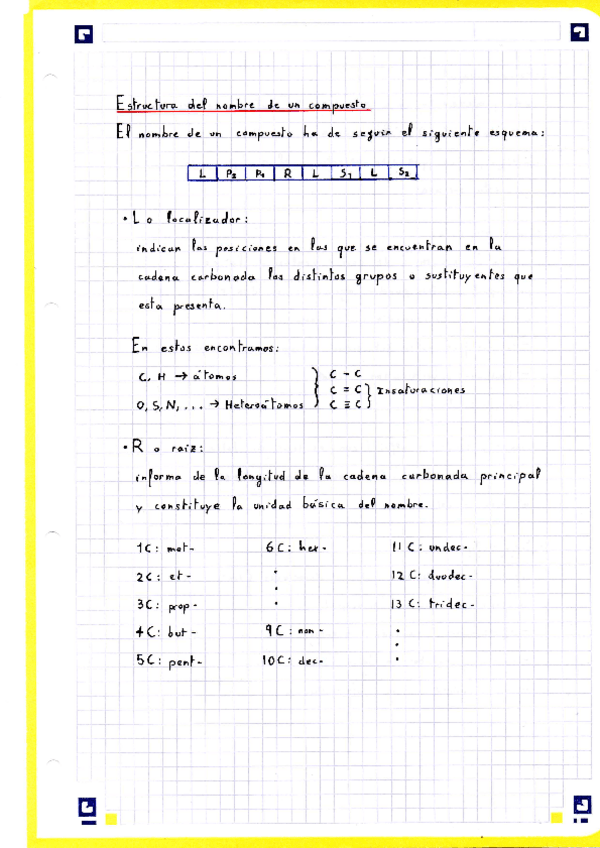 Estructura del nombre de un compuesto
El nombre de un compuesto ha de seguir el siguiente esquema:
L P2 P1 R L S1 L S2
• L o localizador:
indican las posiciones en las que se encuentran en la
cadena carbonada los distintos grupos o sustituyentes que
esta presenta.
En estos encontramos:
C, H → átomos
O, S, N, ... → Heteroátomos
C - C
C = C
C ≡ C
Insaturaciones
• R o raiz:
informa de la longitud de la cadena carbonada principal
y constituye la unidad básica del nombre.
1C: met- 6C: hex- 11C: undec-
2C: et- . 12C: duodec-
3C: prop- . 13C: tridec-
4C: but- 9C: non- .
5C: pent- 10C: dec- .